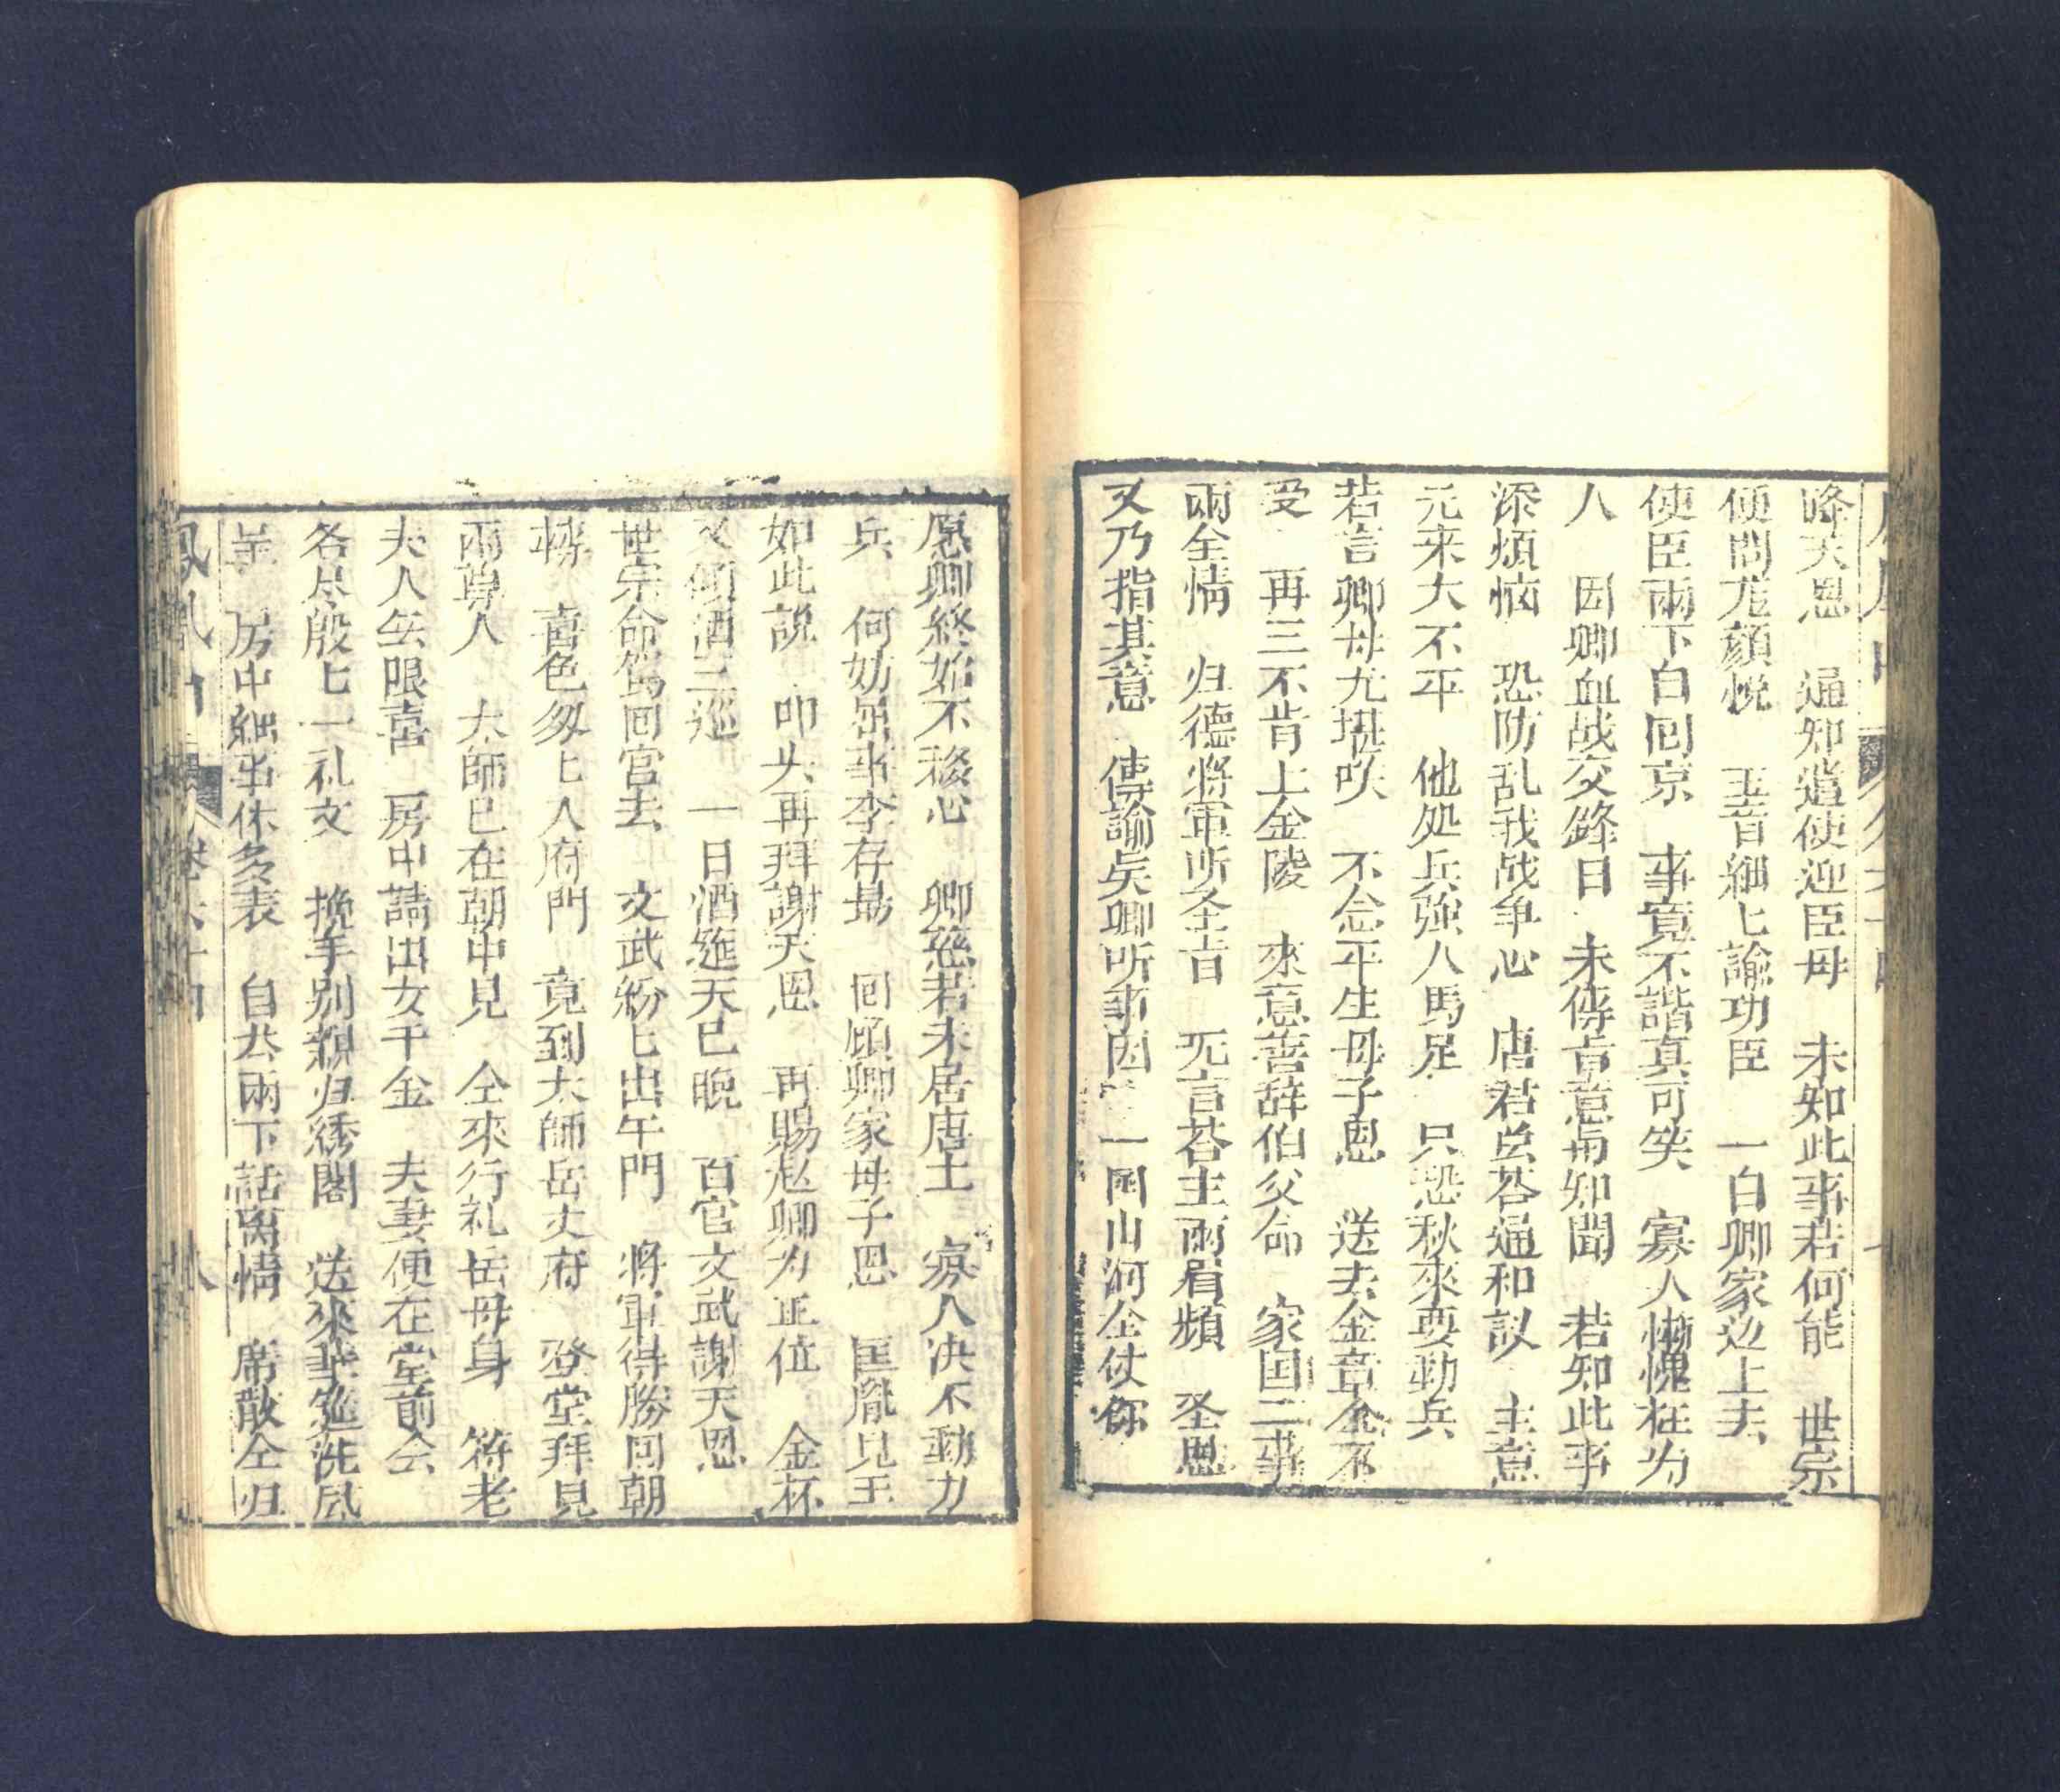 降天恩　通知遣使迎臣母　未知此事若何能　世宗
便問龙顔悦　玉音細匕諭功臣　一白卿家边上去
使臣兩下白囘京　事寛不諧真可笑　寡人慚愧枉为
人　因卿血战交鋒日　未傳音意甬知聞　若知此事
添煩恼　恐防乱我战争心　唐君苔通和议　主意
元来大不平　他処兵強人馬足　只恐秋來要動兵
若言卿母尤堪咲　不念平生母子恩　送去金章全不
受　再三不肯上金陵　來意善辞伯父命　家国二事
兩全情　归德將軍听圣旨　无言荅主兩眉頻　圣恩
又乃指其意　傳諭矣卿听事因　一国山河仝仗你
愿卿終始不移心　卿慈若未居唐土　寡人决不動力
兵　何妨屈事李存勗　囘顧卿家母子恩　匡胤見王
如此說　叩头再拜謝天恩　再賜卿为正位　金杯
又傾酒三巡　一日酒筵天已晚　百官文武謝天恩
世宗命駕囘宫去　文武紛匕出午門　將軍待勝囘朝
轉　喜色匆匕人府門　竟到太師岳丈府　登堂拜見
兩尊人　太師已在朝中見　仝來行礼岳母身　符老
夫人笑眼喜　房中請出女千金　夫妻便在堂前会
各尽殷匕一礼文　挽手别親归绣閣　送來華筵洗风
房中細事休多表　自去兩下話离情　席散仝归
鳳凰山　卷六十四